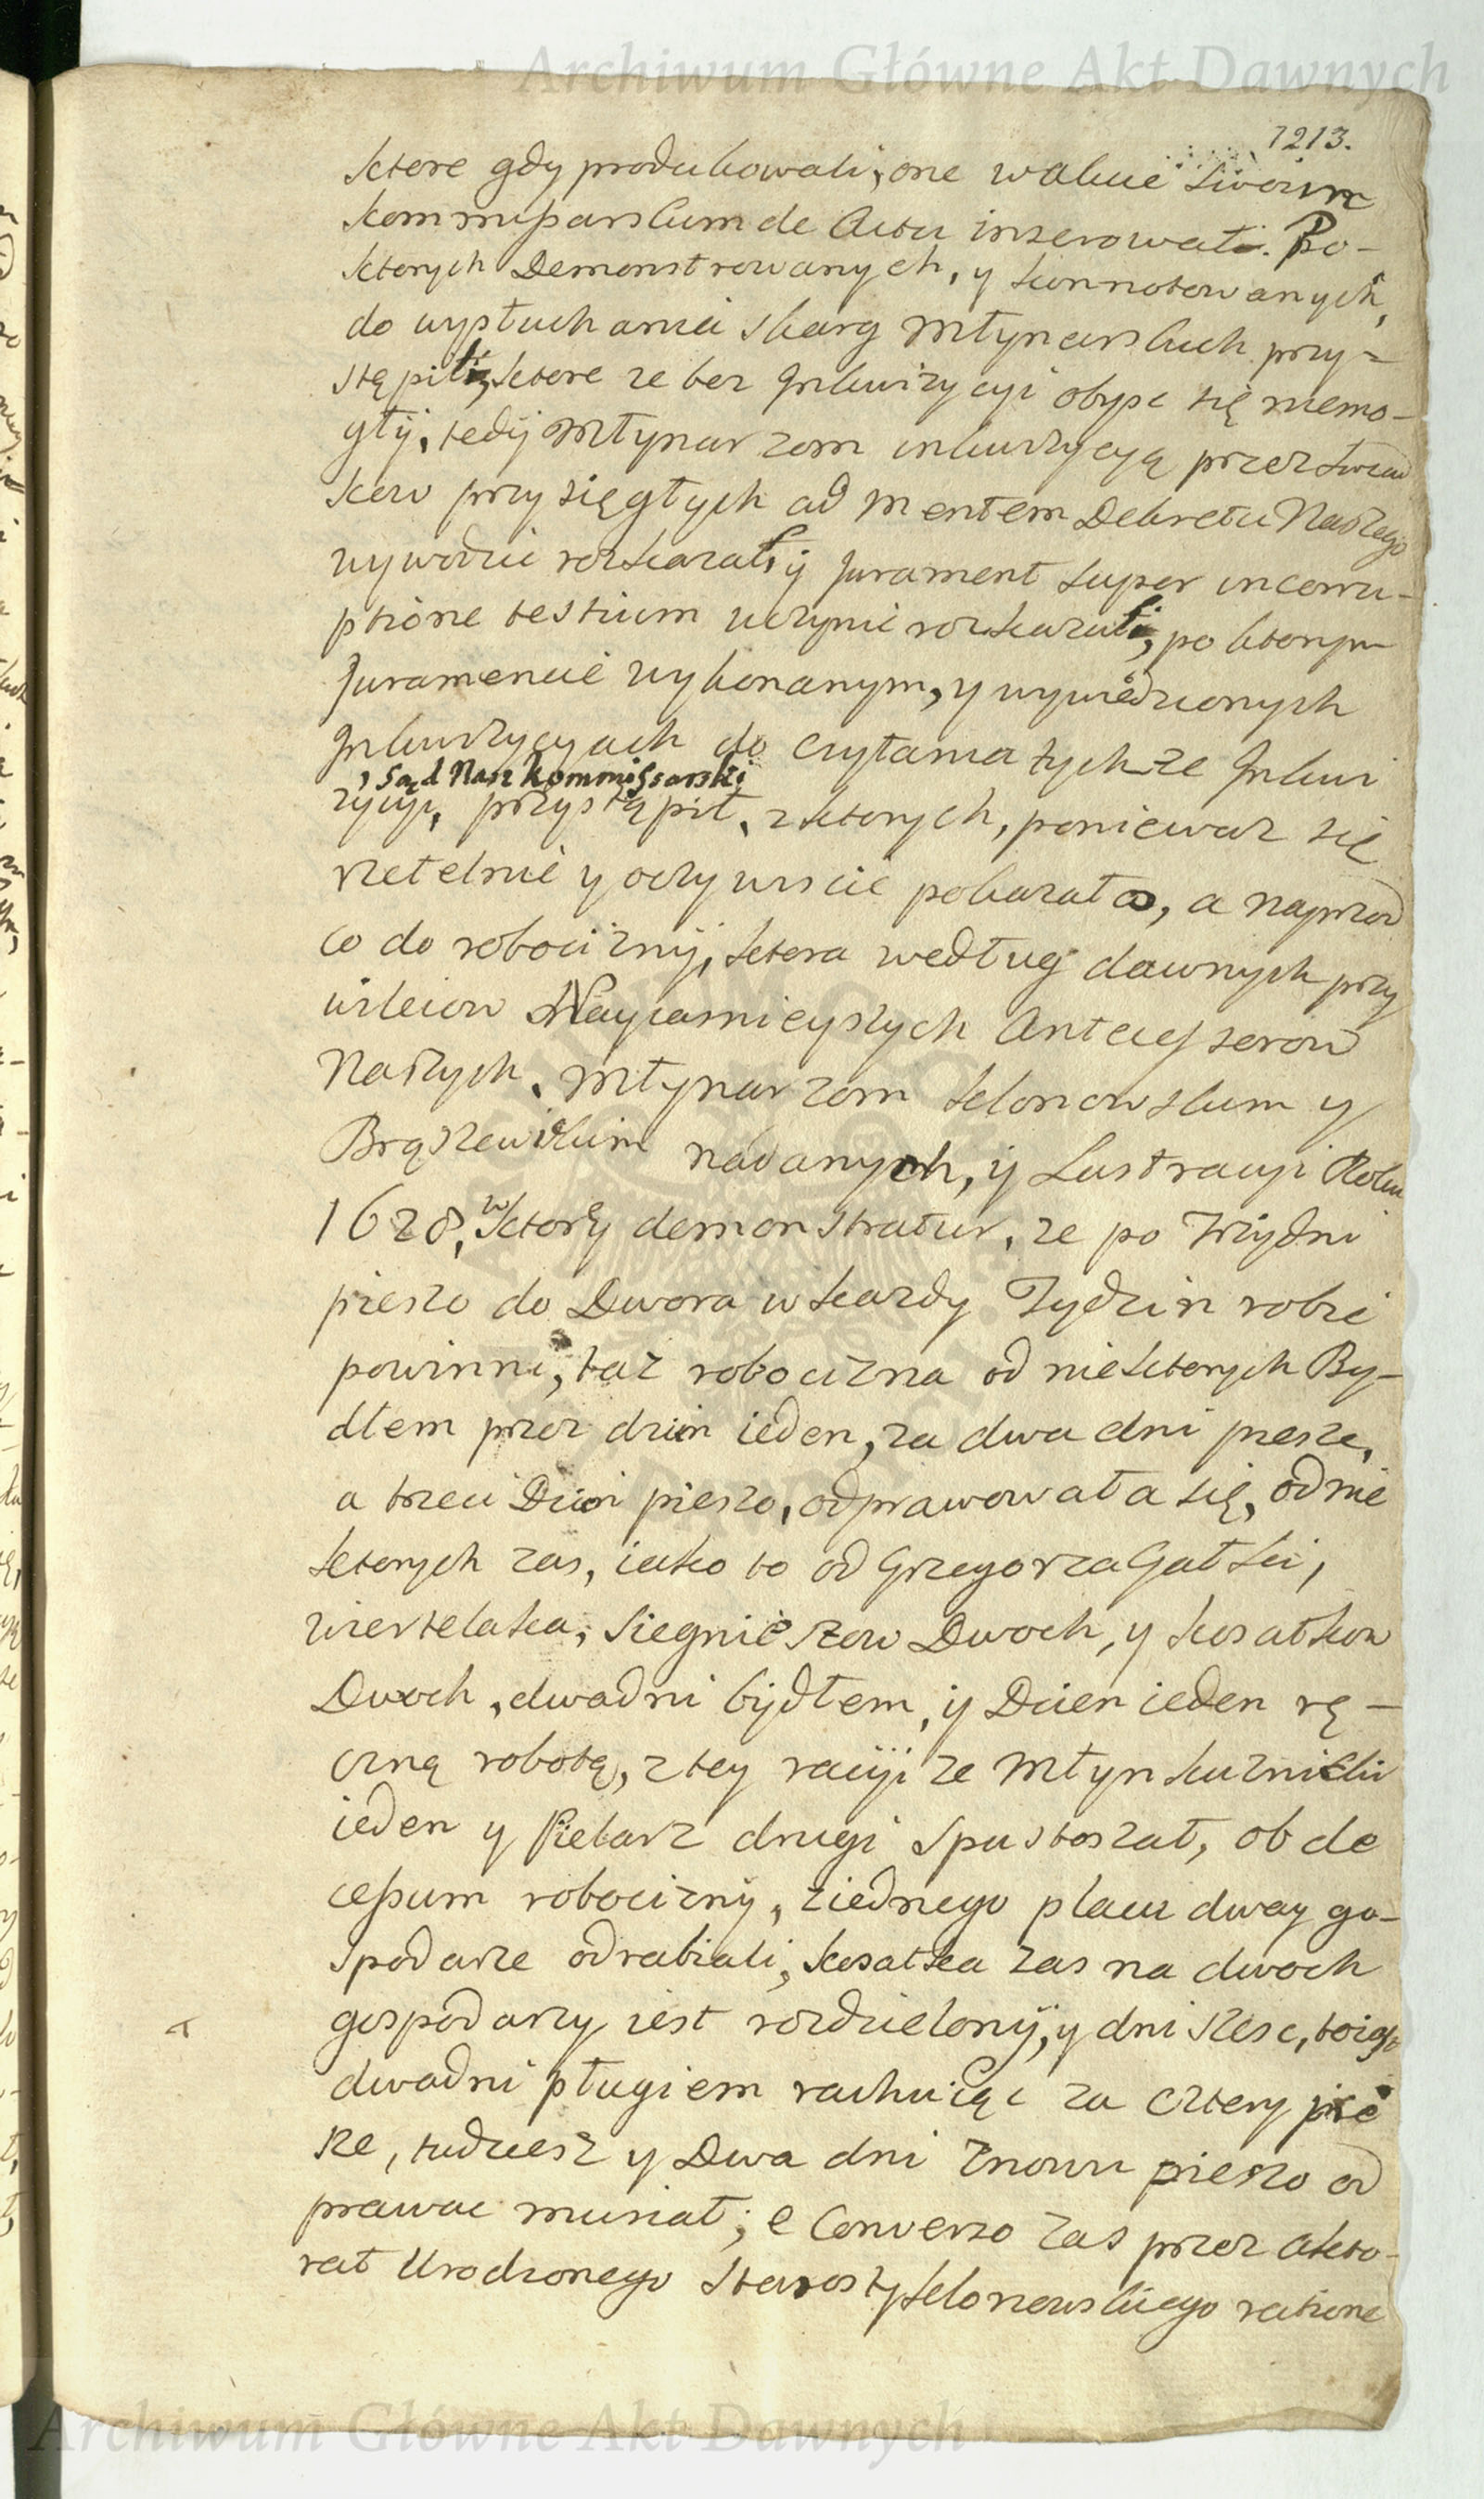 Archiwum Główne Akt Dawnych
1213.
ktore gdy produkowali, one w akcie swoim
kommissarskim de Actu inserowali. Po-
ktorych Demonstrowanych, y konnotowanych,
do wysłuchania skarg Młynarskich przy-
stąpili, ktore ze bez Inkwizycyi obysc się niemo-
gły, tedy Młynarzom inkwizycyą przez swiad
kow przysięgłych ad mentem Dekretu Naszego
wywodzic roskazali y Jurament super incorru-
ptione testium uczynic roskazali, po ktorym
Juramencie wykonanym, y wywiedzionych
Inkwizycyach do czytania tychze Inkwi
, Sąd Nasz kommissarski
zycyi, przystąpił, z ktorych, poniewaz się
rzetelnie y oczywiscie pokazało, a naprzod
co do robocizny, ktora według dawnych przy
wileiow Nayiasnieyszych Antecessorow
Naszych, Młynarzom klonowskim y
Brąszewskim nadanych, y Lustracyi Roku
1628, w ktory demonstratur, ze po trzy dni
pieszo do Dwora w kazdy Tydzin robic
powinni, taz robocizna od niektorych By-
dłem przez dzin ieden, za dwa dni piesze,
a trzeci Dzin pieszo, odprawowała się, od nie
ktorych zas, iako to od Grzegorza Gałki,
wiertelaka, Siegnieszow Dwoch, y kosatkow
Dwoch, dwa dni bydłem, y Dzien ieden rę-
czną robotą, z tey racyi ze Młyn kuznicki
ieden y Pielarz drugi spustoszał, ob de
cessum robocizny, z iednego placu dway go-
spodarze odrabiali, kosatka zas na dwoch
gospodarzy iest rozdzielony, y dni szesc, to iest
dwa dni pługiem rachuiąc za cztery pie
sze, tudziesz y Dwa dni znowu pieszo od
prawac musiał; e Converso zas przez akto-
rat Urodzonego Starosty klonowskiego ratione
Archiwum Główne Akt Dawnych